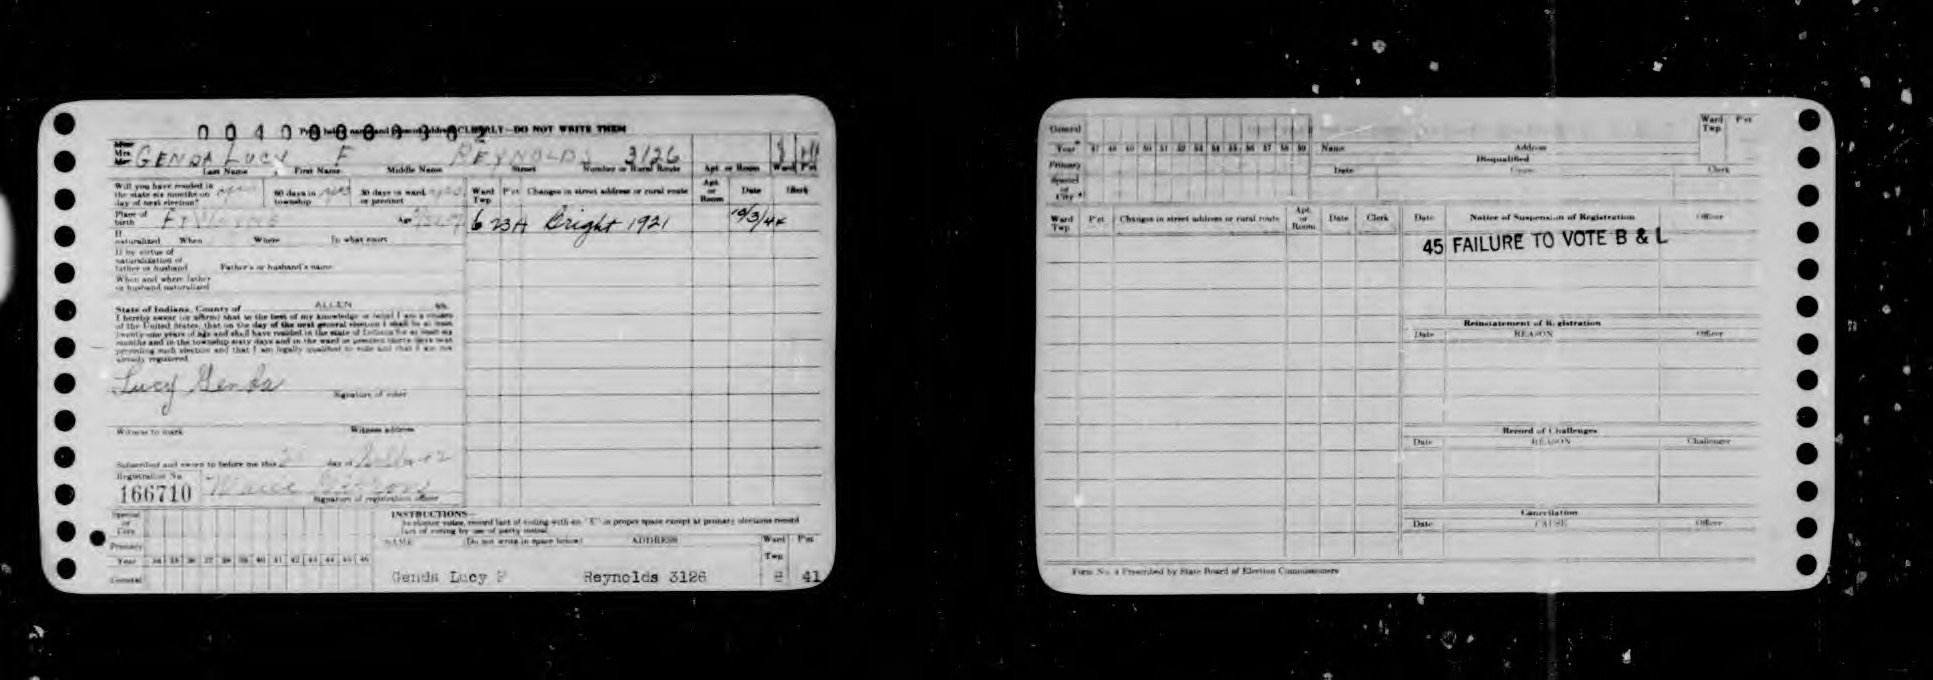 Print below name and present address CLEARLY—DO NOT WRITE THEM
Mrs. GENDA LUCY F REYNOLDS 3126
Last Name First Name Middle Name Street Number or Rural Route Apt. or Room Ward P'ct
Will you have resided in the state six months on day of next election? 60 days in township 30 days in ward or precinct
Place of birth FT WAYNE Age
If naturalized When Where In what court
If by virtue of naturalization of father or husband Father's or husband's name
When and where father or husband naturalized
State of Indiana, County of ALLEN ss.
I hereby swear (or affirm) that to the best of my knowledge or belief I am a citizen
of the United States, that on the day of the next general election I shall be at least
twenty-one years of age and shall have resided in the state of Indiana for at least six
months and in the township sixty days and in the ward or precinct thirty days next
preceding such election and that I am legally qualified to vote and that I am not
already registered.
Lucy Genda
Signature of voter
Witness to mark Witness address
Subscribed and sworn to before me this day of
Registration No.
166710
Signature of registration officer
Ward Twp. P'ct Changes in street address or rural route Apt. or Room Date Clerk
6 23A Bright 1921 10/3/44
Special or City
Primary
Year 34 35 36 37 38 39 40 41 42 43 44 45 46
General
INSTRUCTIONS—
In election votes, record fact of voting with an "X" in proper space except at primary elections record
fact of voting by use of party initial.
NAME (Do not write in space below) ADDRESS Ward Twp. P'ct
Genda Lucy F Reynolds 3126 8 41
General
Year 47 48 49 50 51 52 53 54 55 56 57 58 59
Primary
Special or City
Name Address Ward Twp. P'ct
Disqualified
Date Cause Clerk
Ward Twp. P'ct Changes in street address or rural route Apt. or Room Date Clerk
Date Notice of Suspension of Registration Officer
45 FAILURE TO VOTE B & L
Reinstatement of Registration
Date REASON Officer
Record of Challenges
Date REASON Challenger
Cancellation
Date CAUSE Officer
Form No. 4 Prescribed by State Board of Election Commissioners